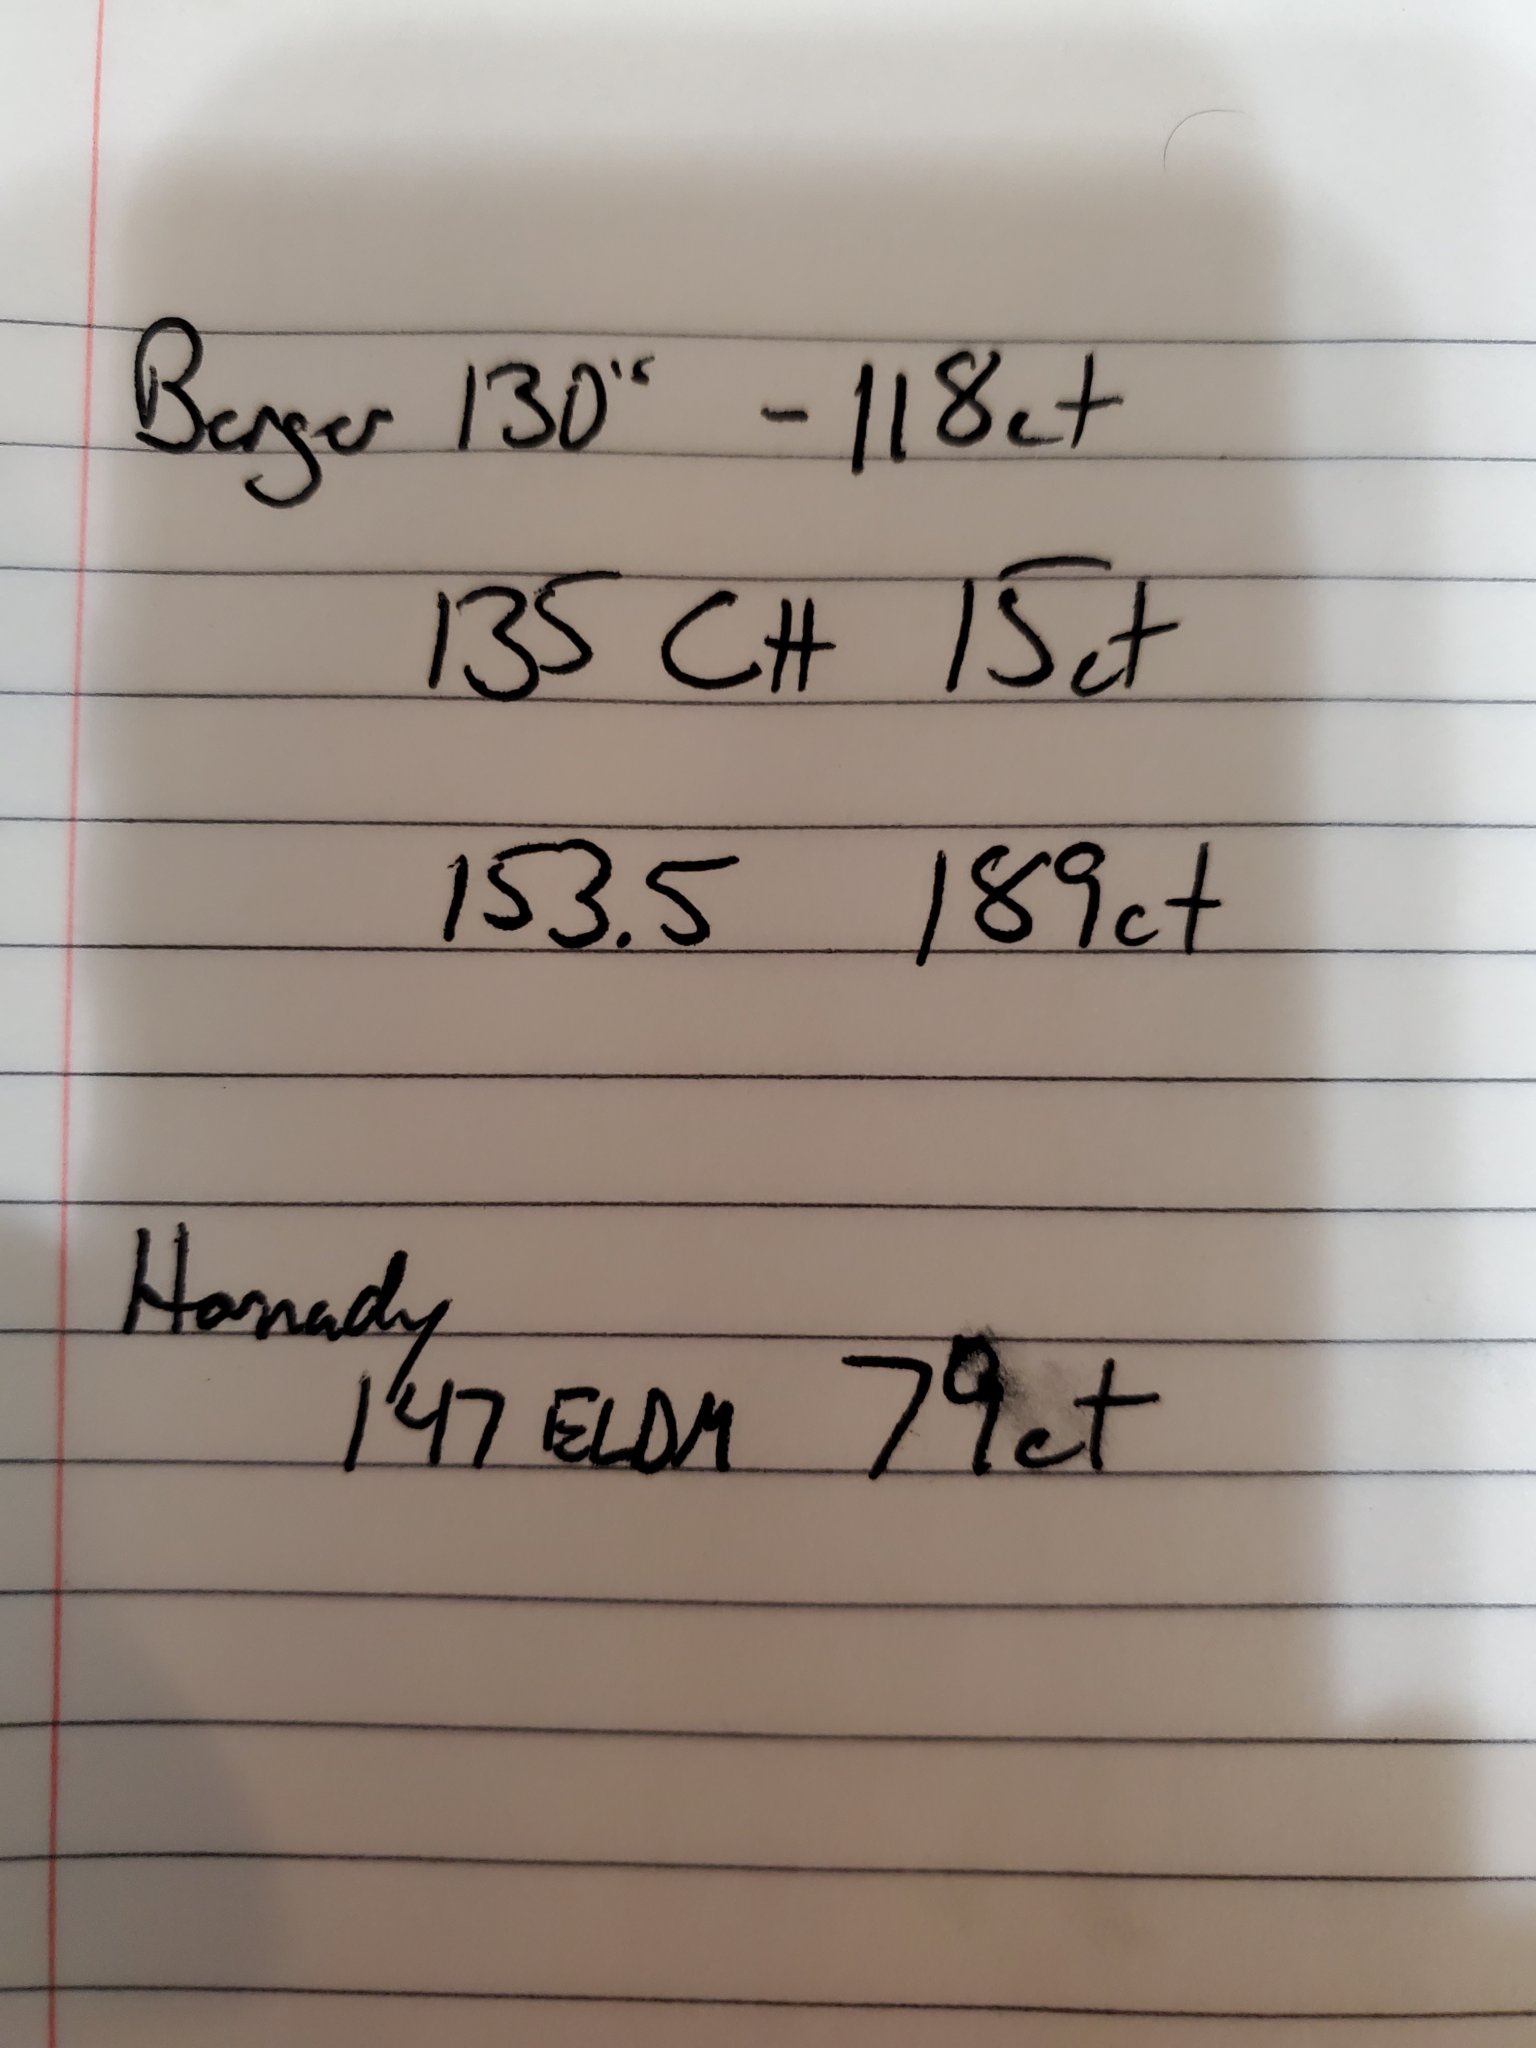 Berger 130's - 118ct
135 CH 15ct
153.5 189ct
Hornady
147 ELDM 79ct